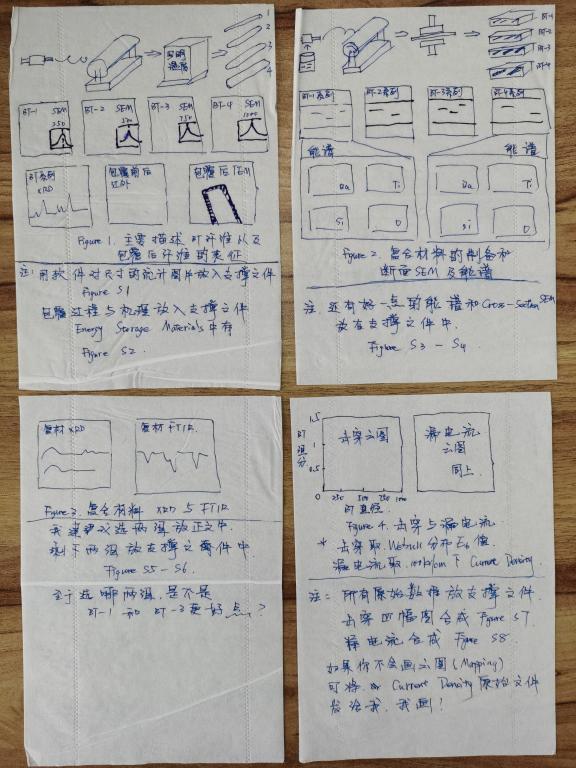 1
2
3
4
BT-1 SEM
250
BT-2 SEM
500
BT-3 SEM
750
BT-4 SEM
1000
BT系列
XRD
包覆前后
红外
包覆后TEM
Figure 1. 主要描述BT纤维以及
包覆后纤维的表征
注: 用软件对尺寸的统计图片放入支撑文件
Figure S1
包覆过程与机理放入支撑文件
Energy Storage Materials中有
Figure S2.
BT-1
BT-2
BT-3
BT-4
BT-1系列
BT-2系列
BT-3系列
BT-4系列
能谱
能谱
Ba
Ti
Si
O
Ba
Ti
Si
O
Figure 2. 复合材料的制备和
断面SEM及能谱
注. 还有好一点的能谱和Cross-Section SEM
放在支撑文件中.
Figure S3 - S4
复材 XRD
复材 FTIR
Figure 3. 复合材料 XRD 与 FTIR
我建议选两组放正文中.
剩下两组放支撑文件中.
Figure S5 - S6.
至于选哪两组, 是不是
BT-1 和 BT-3 更好点?
1.5
1
0.5
0
BT组分
击穿云图
250 500 750 1000
BT直径.
漏电流
云图
同上.
Figure 4. 击穿与漏电流
* 击穿取 Weibull 分布 Eb 值.
漏电流取 100kV/mm 下 Current Density.
注: 所有原始数据放支撑文件.
击穿四幅图合成 Figure S7
漏电流合成 Figure S8.
如果你不会画云图 (Mapping)
可将 Current Density 原始文件
发给我, 我画!